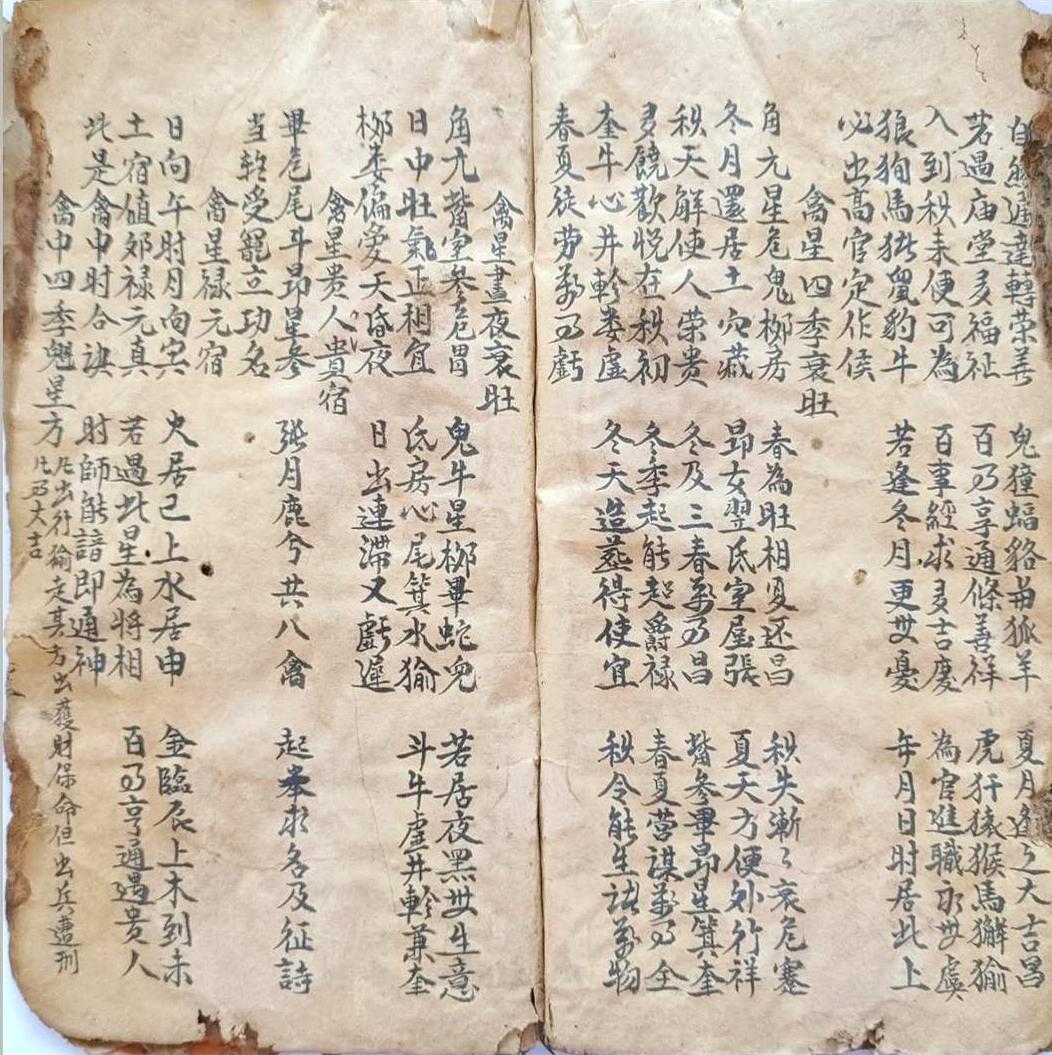 自然通達轉荣善 鬼獐蝠貉兼狐羊 夏月逢之大吉昌
若遇庙堂多福祉 百乃享通條善祥 虎犴猿猴馬獬㺄
入到秋来便可為 百事經求多吉慶 為官進職永世虞
狼狗馬㹨鼠豹牛 若逢冬月更世憂 年月日时居此上
必出高官定作侯
禽星四季衰旺
角亢星危鬼柳房 春為旺相夏还昌 秋失漸〻衰危蹇
冬月還居土穴藏 昴女翌氐室屋張 夏天方便外行祥
秋天解使人荣贵 冬及三春萬乃昌 觜参畢昴星箕奎
多饒歡悦在秋初 冬季起能起爵禄 春夏营謀萬乃全
奎牛心井軫娄虚 冬天造葬得使宜 秋令能生诸萬物
春夏徒劳萬乃虧
禽星晝夜衰旺
角亢觜室参危胃 鬼牛星柳畢蛇兜 若居夜黑世生意
日中旺氣正相宜 氐房心尾箕水㺄 斗牛虚井軫兼奎
柳娄偏爱天昏夜 日出連滞又虧遲
禽星贵人貴宿
畢危尾斗昴星参 張月鹿兮共八禽 起举求名及征詩
当乾受寵立功名
禽星禄元宿
日向午时月向寅 火居己上水居申 金臨辰上木到未
土宿值郊禄元真 若遇此星為将相 百乃亨通遇贵人
此是禽中时合訣 时師能諳即通神
禽中四季魁星方 凡出行㺄走其方出獲財保命但出兵遭刑
凡乃大吉